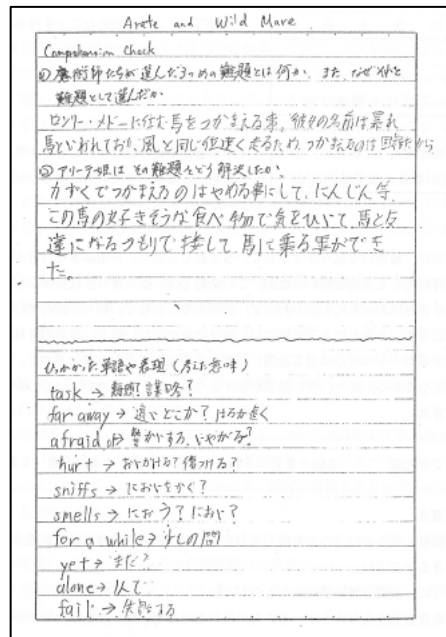 Arete and Wild Mare
Comprehension Check
① 魔術師たちが選んだ3つめの難題とは何か、また、なぜそれを
難題として選んだか
ロンリー・メドーに住む馬をつかまえる事。彼女の名前は暴れ
馬といわれており、風と同じ位速く走るため、つかまえるのは困難だから
② アリーテ姫はその難題をどう解決したか。
力ずくでつかまえるのはやめる事にして、にんじん等、
この馬の好きそうな食べ物で気をひいて、馬と友
達になるつもりで接して馬に乗る事ができ
た。
ひっかかった単語や表現(考えた意味)
task → 難題? 謀略?
far away → 遠いどこか? はるか遠く
afraid of → 警かいする、いやがる?
hurt → おいかける? 傷つける?
sniffs → においをかぐ?
smells → におう? におい?
for a while → 少しの間
yet → まだ?
alone → 1人で
fail → 失敗する